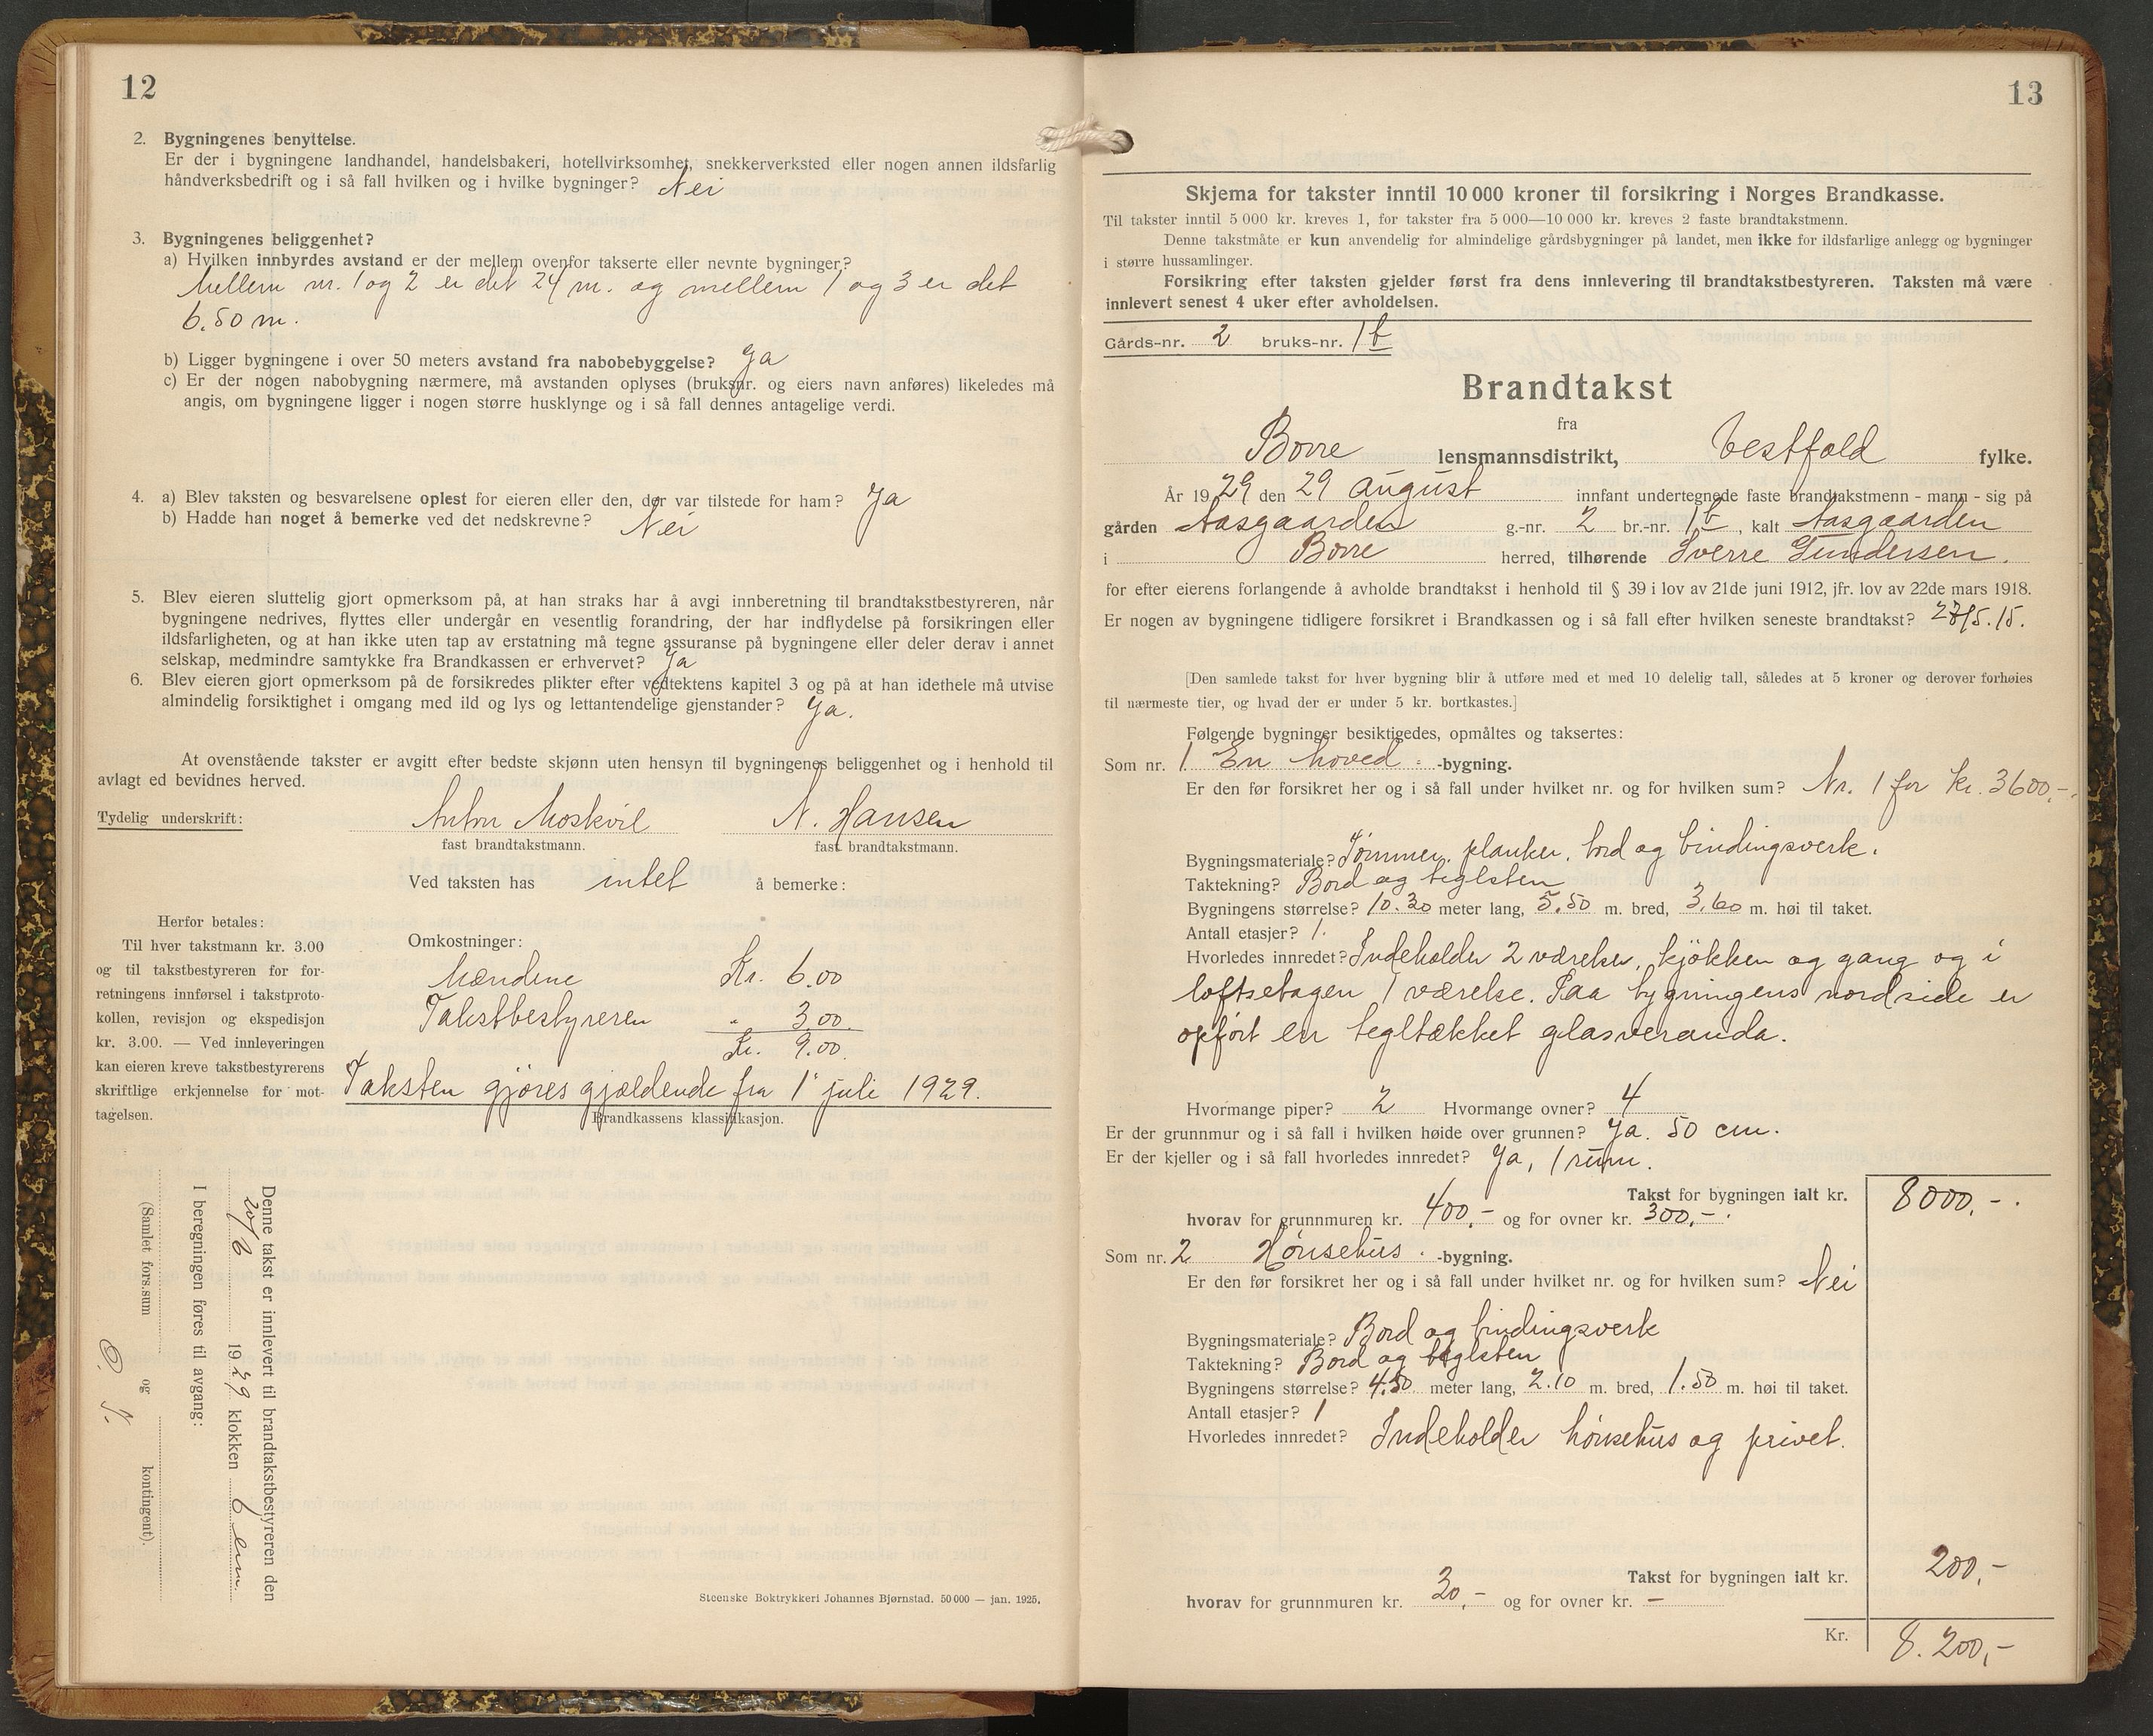 12
2. Bygningenes benyttelse.
Er der i bygningene landhandel, handelsbakeri, hotellvirksomhet, snekkerverksted eller nogen annen ildsfarlig
håndverksbedrift og i så fall hvilken og i hvilke bygninger? Nei
3. Bygningenes beliggenhet?
a) Hvilken innbyrdes avstand er der mellem ovenfor takserte eller nevnte bygninger?
Mellem nr. 1 og 2 er det 24 m. og mellem 1 og 3 er det
6.50 m.
b) Ligger bygningene i over 50 meters avstand fra nabobebyggelse? Ja
c) Er der nogen nabobygning nærmere, må avstanden oplyses (bruksnr. og eiers navn anføres) likeledes må
angis, om bygningene ligger i nogen større husklynge og i så fall dennes antagelige verdi.
4. a) Blev taksten og besvarelsene oplest for eieren eller den, der var tilstede for ham? Ja
b) Hadde han noget å bemerke ved det nedskrevne? Nei
5. Blev eieren sluttelig gjort opmerksom på, at han straks har å avgi innberetning til brandtakstbestyreren, når
bygningene nedrives, flyttes eller undergår en vesentlig forandring, der har indflydelse på forsikringen eller
ildsfarligheten, og at han ikke uten tap av erstatning må tegne assuranse på bygningene eller deler derav i annet
selskap, medmindre samtykke fra Brandkassen er erhvervet? Ja
6. Blev eieren gjort opmerksom på de forsikredes plikter efter vedtektens kapitel 3 og på at han idethele må utvise
almindelig forsiktighet i omgang med ild og lys og lettantendelige gjenstander? Ja.
At ovenstående takster er avgitt efter bedste skjønn uten hensyn til bygningenes beliggenhet og i henhold til
avlagt ed bevidnes herved.
Tydelig underskrift: Anton Moskvil N. Hansen
fast brandtakstmann. fast brandtakstmann.
Ved taksten has intet å bemerke:
Herfor betales:
Til hver takstmann kr. 3.00
og til takstbestyreren for for-
retningens innførsel i takstproto-
kollen, revisjon og ekspedisjon
kr. 3.00. — Ved innleveringen
kan eieren kreve takstbestyrerens
skriftlige erkjennelse for mot-
tagelsen.
Omkostninger:
Mændene Kr. 6.00
Takstbestyreren " 3.00.
Kr. 9.00.
Taksten gjøres gjældende fra 1' juli 1929.
Brandkassens klassifikasjon.
Denne takst er innlevert til brandtakstbestyreren den
20/6 1929 klokken 6 em.
I beregningen føres til avgang:
(Samlet fors.sum og kontingent).
Steenske Boktrykkeri Johannes Bjørnstad. 50 000 — jan. 1925.
13
Skjema for takster inntil 10 000 kroner til forsikring i Norges Brandkasse.
Til takster inntil 5 000 kr. kreves 1, for takster fra 5 000—10 000 kr. kreves 2 faste brandtakstmenn.
Denne takstmåte er kun anvendelig for almindelige gårdsbygninger på landet, men ikke for ildsfarlige anlegg og bygninger
i større hussamlinger.
Forsikring efter taksten gjelder først fra dens innlevering til brandtakstbestyreren. Taksten må være
innlevert senest 4 uker efter avholdelsen.
Gårds-nr. 2 bruks-nr. 1 b
Brandtakst
fra
Borre lensmannsdistrikt, Vestfold fylke.
År 1929 den 29 august innfant undertegnede faste brandtakstmenn - mann - sig på
gården Aasgaarden g.-nr. 2 br.-nr. 1 b, kalt Aasgaarden
i Borre herred, tilhørende Sverre Gundersen.
for efter eierens forlangende å avholde brandtakst i henhold til § 39 i lov av 21de juni 1912, jfr. lov av 22de mars 1918.
Er nogen av bygningene tidligere forsikret i Brandkassen og i så fall efter hvilken seneste brandtakst?
[Den samlede takst for hver bygning blir å utføre med et med 10 delelig tall, således at 5 kroner og derover forhøies
til nærmeste tier, og hvad der er under 5 kr. bortkastes.]
Følgende bygninger besiktigedes, opmåltes og taksertes:
Som nr. 1 En hoved- -bygning.
Er den før forsikret her og i så fall under hvilket nr. og for hvilken sum? Nr. 1 for kr. 3600,-.
Bygningsmateriale? Tømmer, planker, bord og bindingsverk.
Taktekning? Bord og teglsten
Bygningens størrelse? 10.30 meter lang, 5.50 m. bred, 3.60 m. høi til taket.
Antall etasjer? 1.
Hvorledes innredet? Indeholder 2 værelser, kjøkken og gang og i
loftsetagen 1 værelse. Paa bygningens nordside er
opført en tegltækket glasveranda.
Hvormange piper? 2 Hvormange ovner? 4
Er der grunnmur og i så fall i hvilken høide over grunnen? Ja. 50 cm.
Er der kjeller og i så fall hvorledes innredet? Ja, 1 rum.
Takst for bygningen ialt kr. 8000,-.
hvorav for grunnmuren kr. 400,- og for ovner kr. 300,-.
Som nr. 2 Hønsehus. -bygning.
Er den før forsikret her og i så fall under hvilket nr. og for hvilken sum? Nei
Bygningsmateriale? Bord og bindingsverk
Taktekning? Bord og teglsten
Bygningens størrelse? 4.50 meter lang, 2.10 m. bred, 1.50 m. høi til taket.
Antall etasjer? 1
Hvorledes innredet? Indeholder hønsehus og privet.
Takst for bygningen ialt kr. 200,-
hvorav for grunnmuren kr. 30,- og for ovner kr. -
Kr. 8.200,-